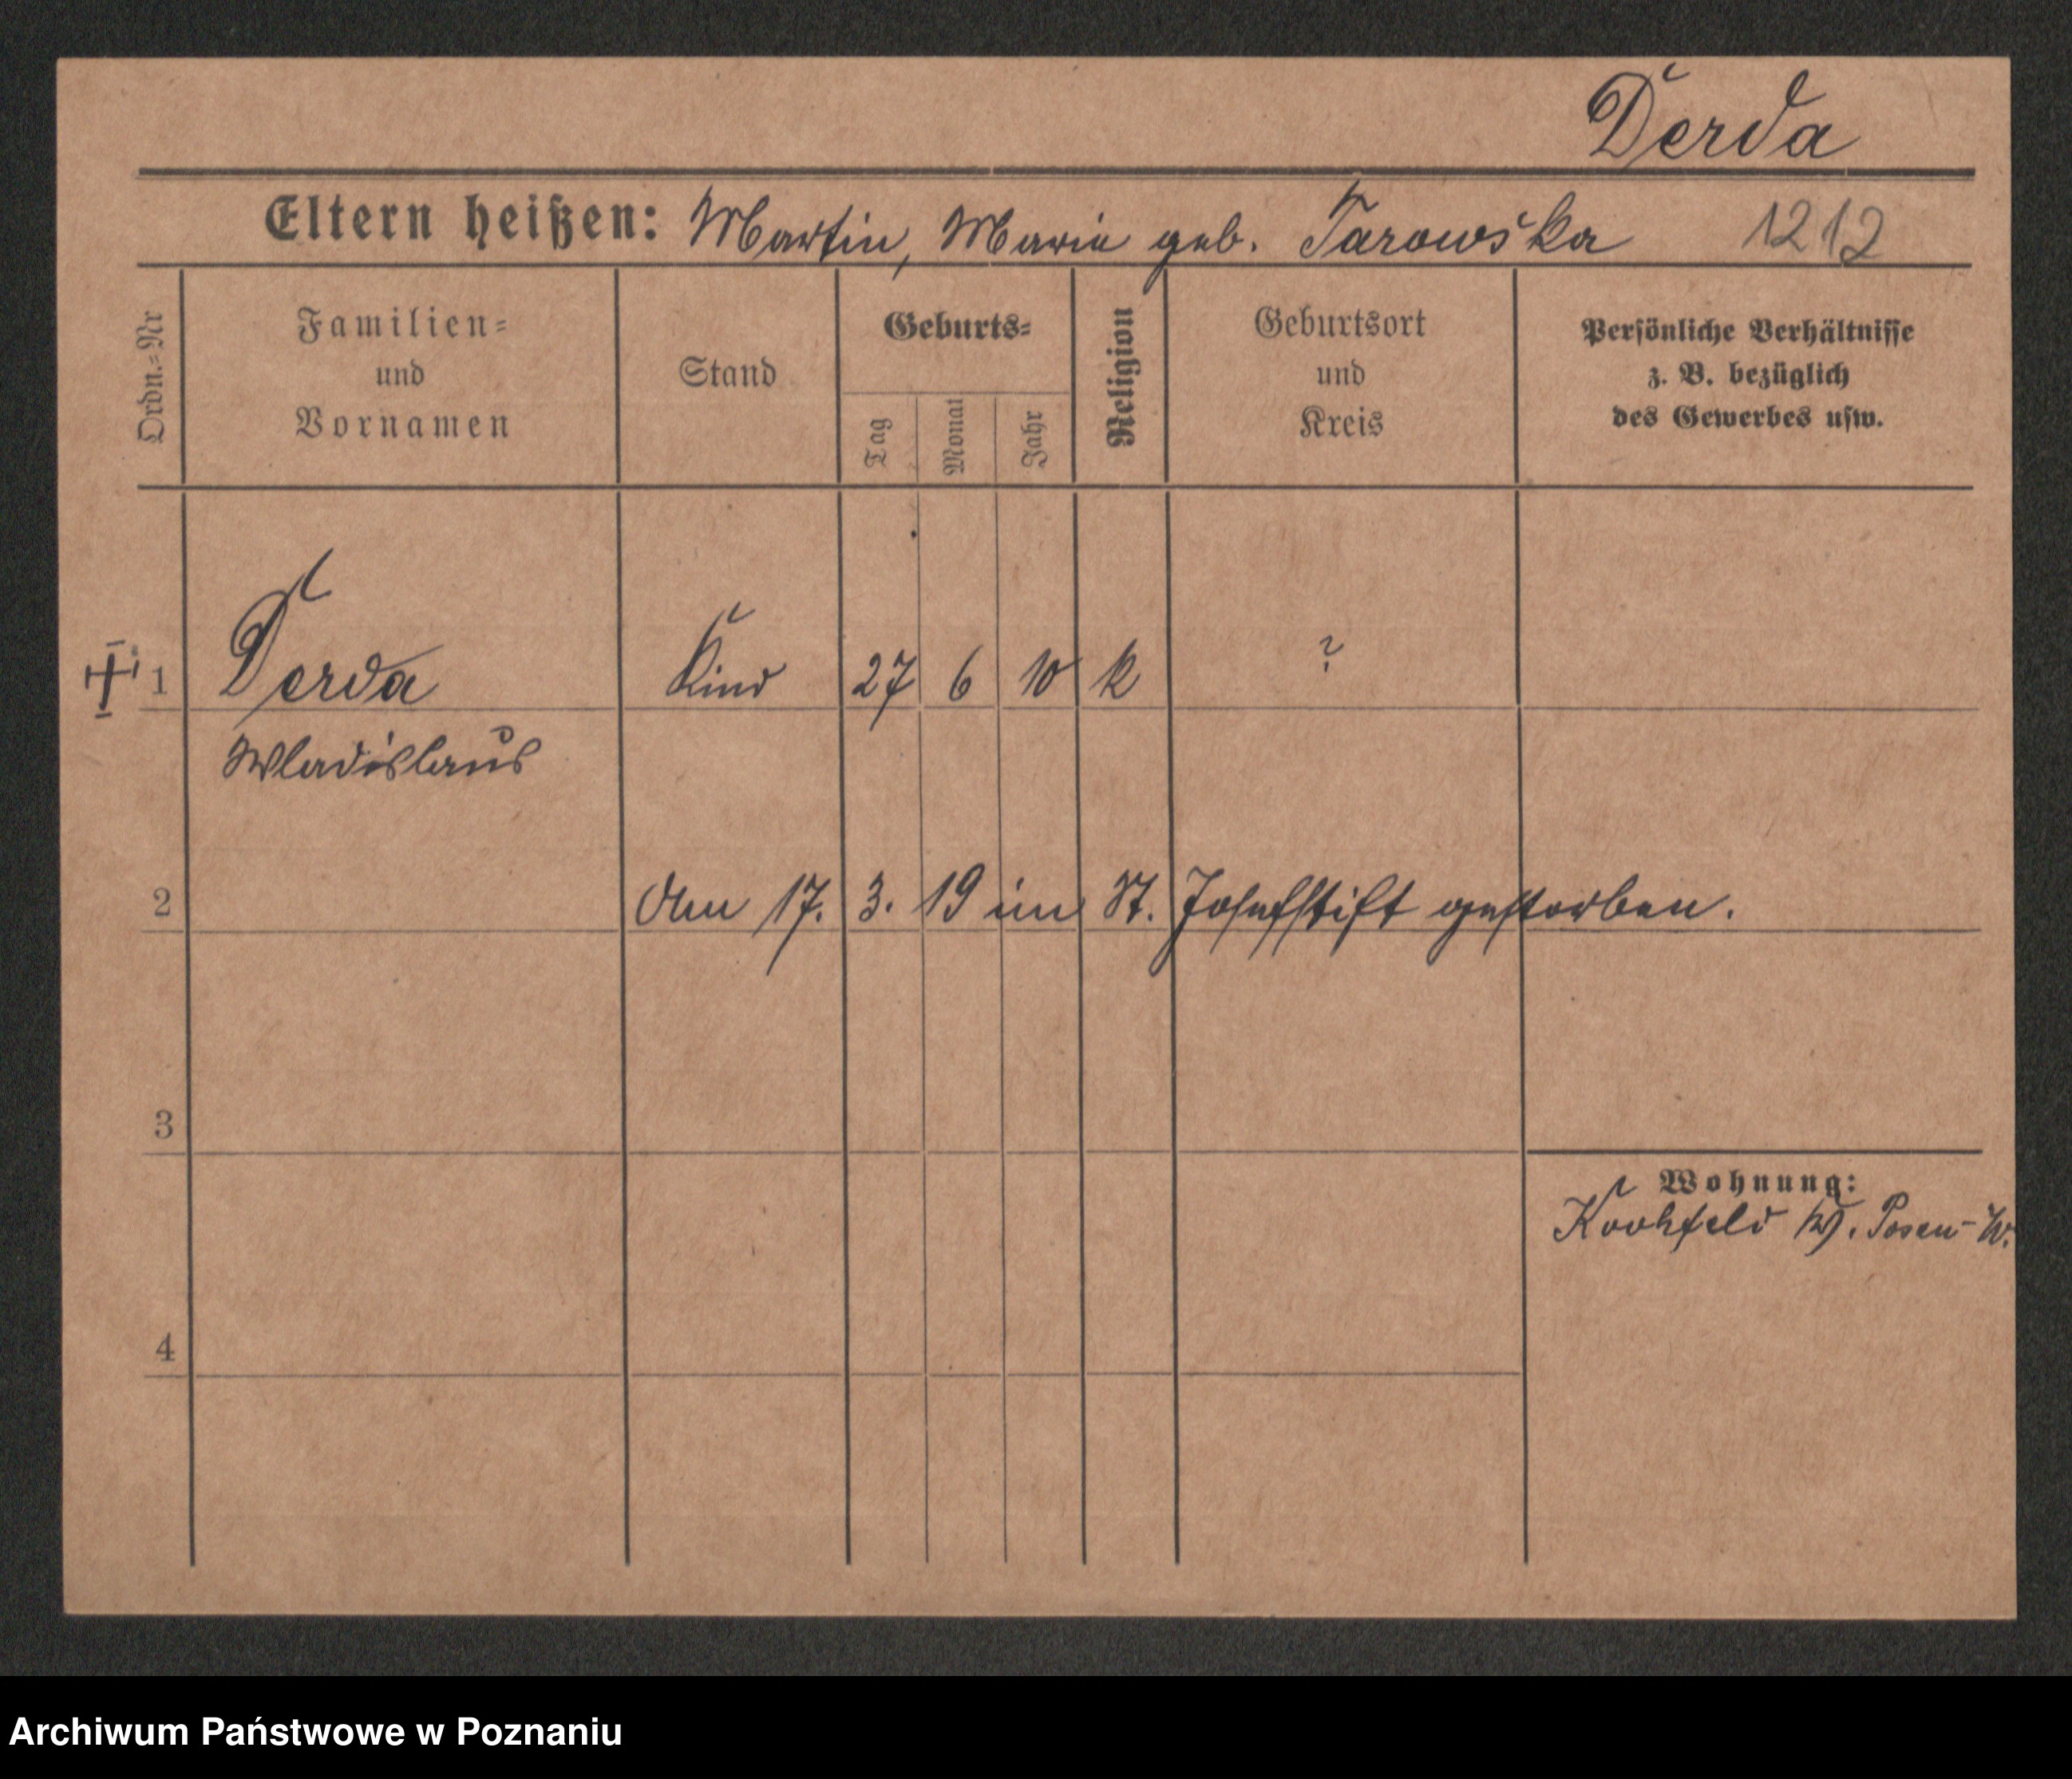 Derda
Eltern heißen: Martin, Marie geb. Tarowska 1212
Ordn.=Nr
Familien=
und
Vornamen
Stand
Geburts=
Tag
Monat
Jahr
Religion
Geburtsort
und
Kreis
Persönliche Verhältnisse
z. B. bezüglich
des Gewerbes usw.
1 Derda Kind 27 6 10 k ?
Wladislaus
2 Am 17. 3. 19 im St. Josefstift gestorben.
3
Wohnung:
Posen-W.
4
Archiwum Państwowe w Poznaniu